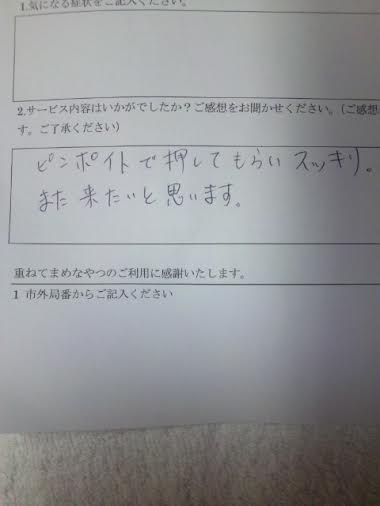 1.気になる症状をご記入ください。
2.サービス内容はいかがでしたか？ご感想をお聞かせください。（ご感想
す。ご了承ください）
ピンポイトで押してもらいスッキリ。
また来たいと思います。
重ねてまめなやつのご利用に感謝いたします。
1 市外局番からご記入ください